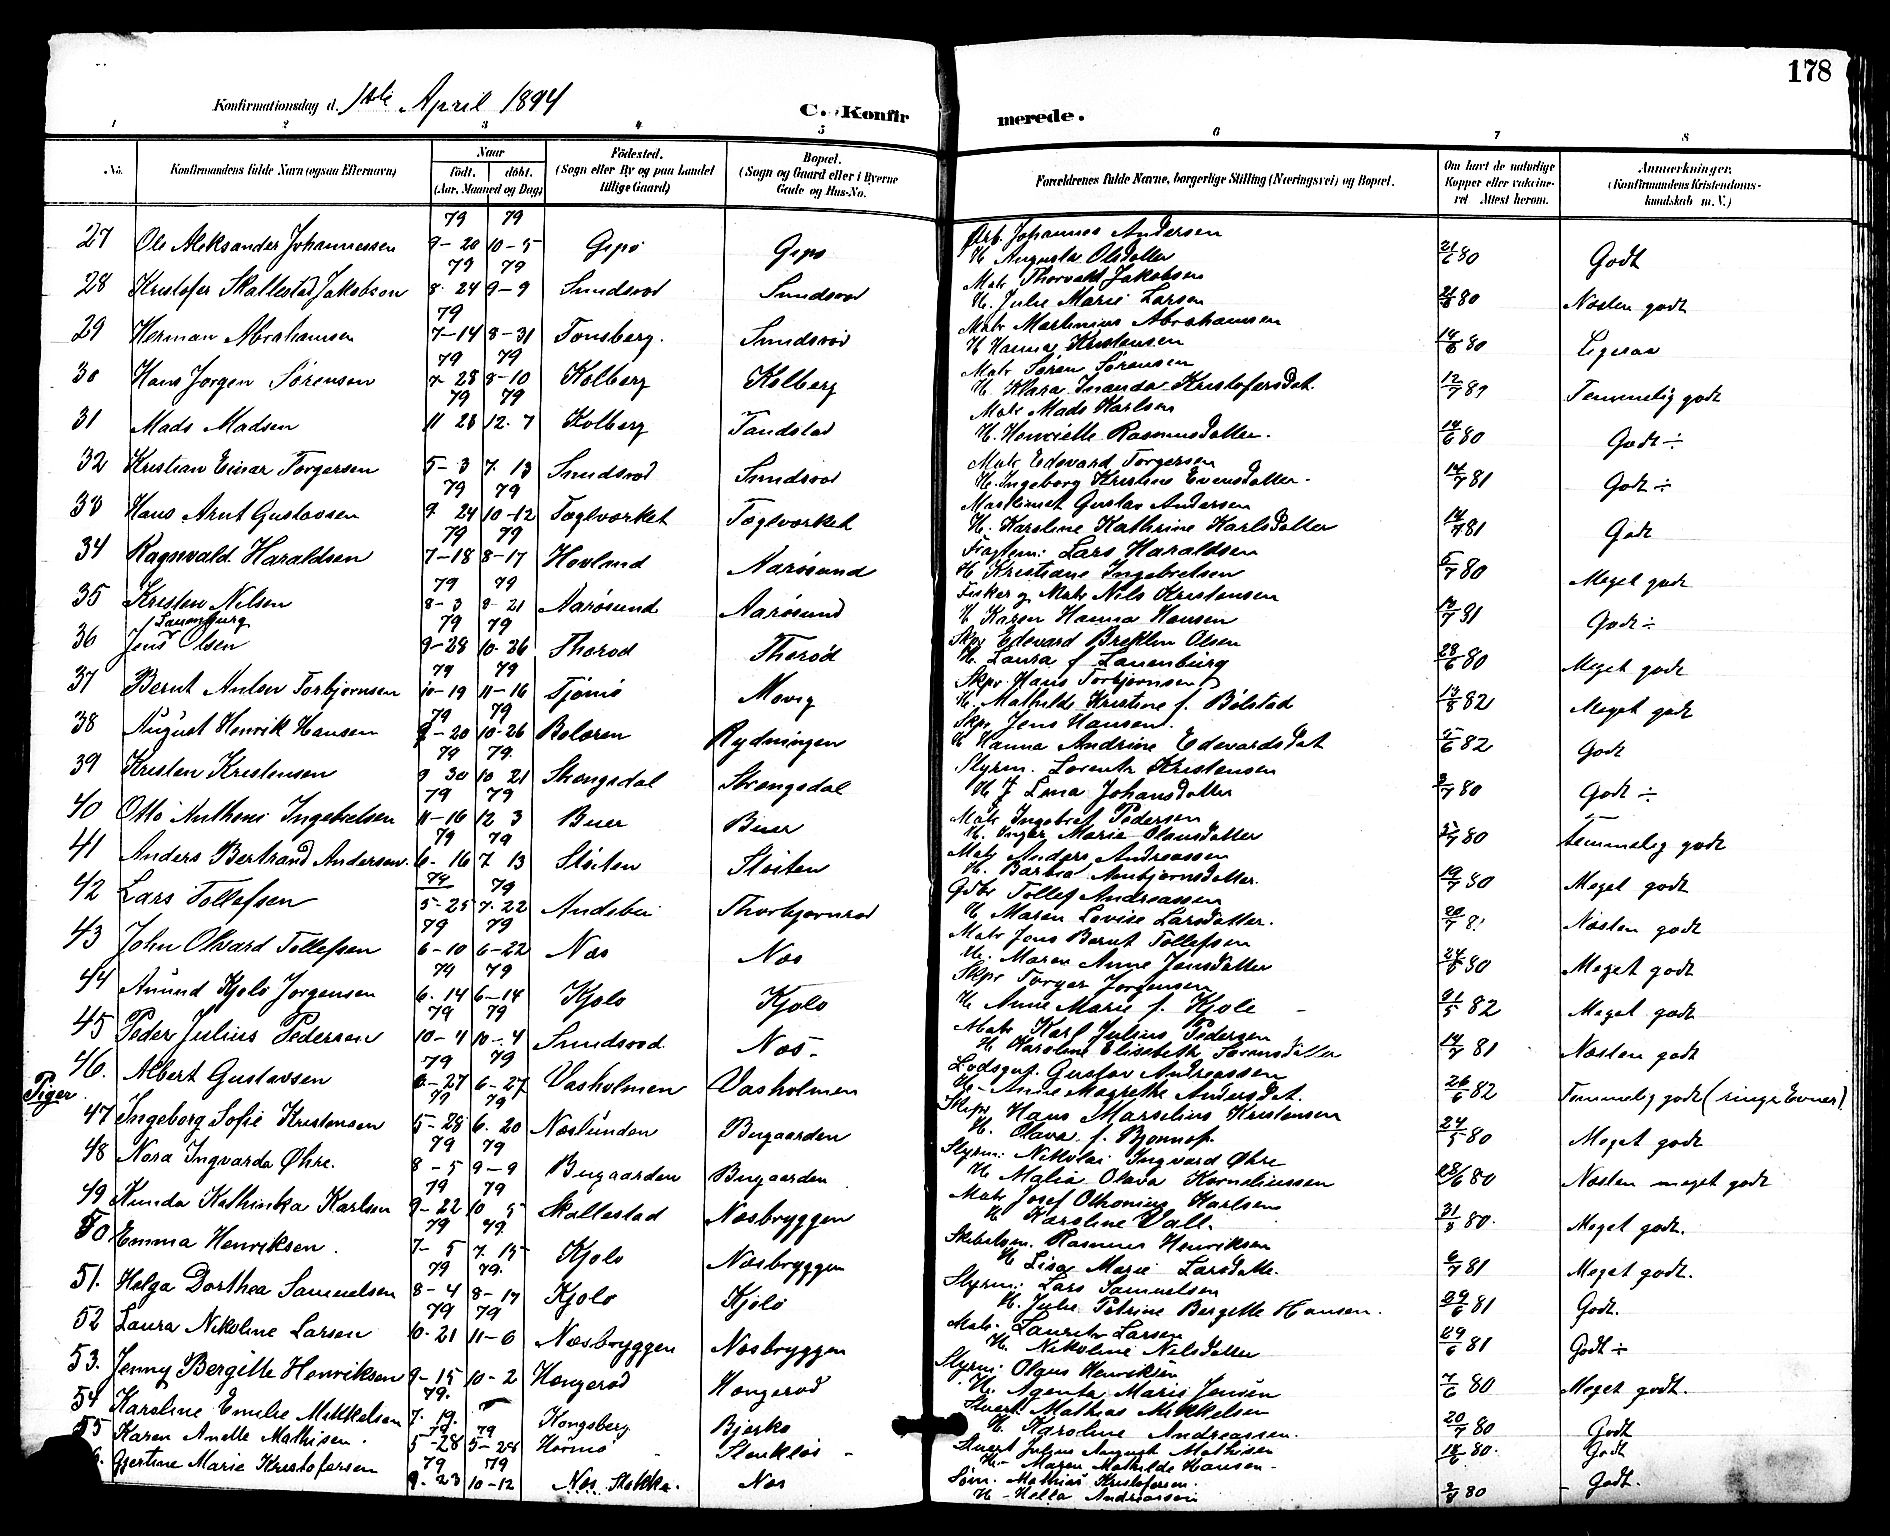 178
Konfirmationsdag d. 1ste April 1894
C. Konfirmerede.
1 2 3 4 5 6 7 8
No. Konfirmandens fulde Navn (ogsaa Efternavn) Naar födt. döbt. (Aar, Maaned og Dag) Födested. (Sogn eller By og paa Landet tillige Gaard) Bopæl. (Sogn og Gaard eller i Byerne Gade og Hus-No. Forældrenes fulde Navne, borgerlige Stilling (Næringsvei) og Bopæl. Om havt de naturlige Kopper eller vakcineret Attest herom. Anmærkninger. (Konfirmandens Kristendomskundskab m. V.)
27 Ole Aleksander Johannessen 79 9-20 79 10-5 Gipö Gipö Arb. Johannes Andersen H. Augusta Olsdatter 21/6 80 Godt
28 Kristofer Skallestad Jakobsen 79 8-24 79 9-9 Smidsrod Smidsrod Matr Thorvald Jakobsen H. Julie Marie Larsen 80 Næsten godt
29 Herman Abrahamsen 79 7-14 8-31 Tonsberg. Smidsrod Matr Martinius Abrahamsen H Hanna Kristensen 14/6 80 Ligesaa
30 Hans Jorgen Sörensen 79 7-28 79 8-10 Kolberg Kolberg Matr Sören Sörensen H Klara Kristofersdat. 12/7 80 Temmelig godt
31 Mads Madsen 79 11 28 79 12. 7 Kolberg Tandstad Matr Mads Karlsen H. Henriette Rasmusdatter. 14/6 80 Godt ÷
32 Kristian Einar Torgersen 5-3 7. 13 Smidsrod Smidsrod Matr Edvard Torgersen H. Ingeborg Kristine Evensdatter. 14/7 81 Godt ÷
33 Hans Arnt Gustavsen 79 9 24 79 10-12 Teglværket Teglværket Maskinist Gustav Andersen H. Karoline Kathrine Karlsdatter 14/7 81 Godt
34 Ragnvald Haraldsen 79 7-18 79 8-17 Hovland Aarösund Fragtem: Lars Haraldsen H Kristiane Ingebretsen 5/7 80 Meget godt
35 Kristen Nilsen 79 8-3 79 8-21 Aarösund Aarösund Fisker og Matr Nils Kristensen H Karen Hanna Hansen 81 Godt ÷
36 Jens Lauenburg Olsen 79 9-28 79 10. 26 Thorod Thoröd Skpr Edevard Olsen H. Laura f. Lauenburg 28/6 80 Meget godt
37 Bernt Anton Torbjornsen 79 10-19 79 11-16 Tjömö Movig Skpr Hans Torbjornsen H. Mathilde Kristine f. Bölstad 13/8 82 Meget godt
38 August Henrik Hansen 79 9-20 79 10-26 Bolæren Rydningen Skpr. Jens Hansen. H Hanna Andrine Edevardsdat 5/6 82 Godt
39 Kristen Kristensen 79 9 30 79. 10 21 Strengsdal Strengsdal Styrm. Lorentz Kristensen H Lina Johansdatter 80 Godt ÷
40 Otto Anthoni Ingebretsen 79 11-16 79 12 3 Buer Buer Matr Ingebret Pedersen H. Inger Marie Olausdatter 80 temmelig godt
41 Anders Bertrand Andersen. 79 6. 16 79 7 13 Slöiten Slöiten Matr Anders Andreassen H. Barbra Ambjornsdatter. 19/7 80 Meget godt
42 Lars Tollefsen 79 5-25 79 7. 22 Andebu Thorbjornrod Gdbr Tollef Andreassen H Maren Lovise Larsdatter. 20/7 8. Næsten godt
43 John Olvard Tollefsen 79 6-10 79 6-22 Næs Næs Matr Jens Bernt Tollefsen H. Maren Anne Jensdatter 80 Meget godt
44 Amund Kjolö Jorgensen 79 6. 14 79 6-14 Kjolo Kjolo Skpr Torger Jorgensen H Anne Marie f. Kjole 31/5 82 Meget godt
45 Peder Julius Pedersen 79 10-4 79 10-4 Smidsrod Næs- Matr Karl Julius Pedersen H Karoline Elisabeth Sorensdatter 14/7 81 Næsten godt
46. Albert Gustavsen 79 6-27 79 6-27 Vasholmen Vasholmen Lodsgut. Gustav Andreassen H- Anne Magrethe Andersdat. 26/6 82 Temmelig godt (ringe Evner)
Piger
47 Ingeborg Sofie Kristensen 79 5-28 79 6. 20 Næslunden Bugaarden Skpr Hans Marselius Kristensen H. Olava f. Bjonnes 24/5 80 Meget godt
48 Nora Ingvarda Öhre. 79 8-5 79 9-9 Bugaarden Bugaarden Styrm: Nikolai Ingvard Öhre H Malia Olava Korneliussen 28/6 80 Næsten meget godt
49 Nunda Kathinka Karlsen 79 9-22 79 10 5 Skallestad Næsbryggen Matr Josef Othonius Karlsen H Karoline Vall. 31/3 80. Meget godt.
50 Emma Henriksen. 79 7-5 79. 7. 15 Kjolo Næsbryggen Skibstom. Rasmus Henriksen H Lisa Marie Larsdatte. 6/7 81 Meget godt.
51. Helga Dorthea Samuelsen 79 8-4 79. 8-17 Kjolo Kjölö Styrm: Lars Samuelsen H. Julie Petrine Bergette Hansen. 29/6 81 Godt.
52 Laura Nikoline Larsen 79 6. 21 79 11-6 Næsbryggen Næsbryggen Matr. Lauritz Larsen H. Nikoline Nilsdatter 29/6 81 Godt ÷
53. Jenny Bergitte Henriksen 9-15 10-2 Hongerod Hongerod Styrm: Olaus Henriksen H. Agenta Marie Jensen 7/6 80 Meget godt.
54 Karoline Emilie Mikkelsen 79. 7. 19. Kongsberg Bjerke Stuert Mathias Mikkelsen H. Karoline Andreassen. 20/7 80 Godt
55 Karen Anette Mathisen. 79 5-28 79 5-28 Hörnö Stenklös Stuert Julius August Mathisen H.- Maren Mathilde Hansen- 80. Godt
Gjertine Marie Kristofersen 79 9. 23 79 10-12 Næs Stokke. Næs Söm. Mathias Kristofersen. H- Hella Andreassen 80 - Godt.